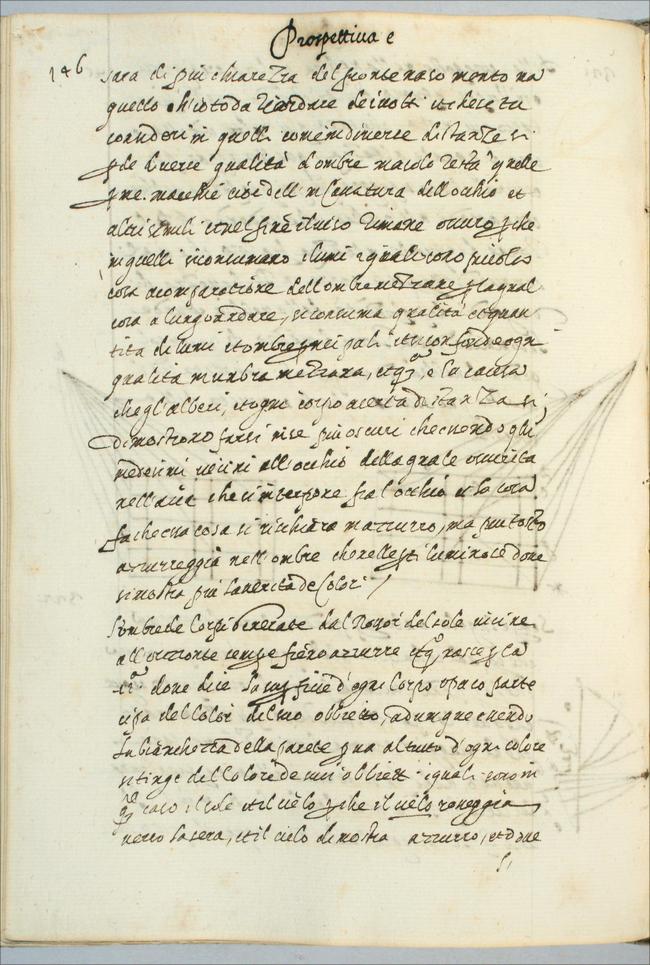 Prospettiva e
146
sara di piu chiarezza del fronte naso mento ma
quello ch'io to da ricordare de i volti e che tu
consideri in quelli come in diverse distanze si
perde diverse qualità d'ombre ma solo resta quelle
prime macchie cioè dell'incavatura dell'occhio et
altri simili et nel fine il viso rimane oscuro perche
in quelli si consumano i lumi i quali sono piccola
cosa a comparatione dell'ombre mezzane per la qual
cosa a lungo andare si consuma qualità et quan
tita di lumi et ombre principali et si confonde ogni
qualita in un'ombra mezzana, et questa e la causa
che gl'alberi, et ogni corpo a certa distanza si
dimostrono farsi in se piu oscuri che essendo gli
medesimi vicini all'occhio della quale oscurita
nell'aria che s'interpone fra l'occhio et la cosa
fa che essa cosa si rischiara in azzurro, ma piu tosto
azzurreggia nell'ombre che nelle parti luminose dove
si mostra piu la verità de Colori /
L'ombre de Corpi generate dal Rossor del sole vicin
all'orizonte sempre fieno azzurre et questo nasce per la
dove dice la superficie d'ogni Corpo opaco parte
cipa del Color del suo obbietto, adunque essendo
la bianchezza della parete priva al tutto d'ogni colore
si tinge del Colore de suoi obbietti i quali sono in
questo caso il sole et il cielo perche il cielo rosseggia
verso la sera, et il cielo dimostra azzurro, et dove